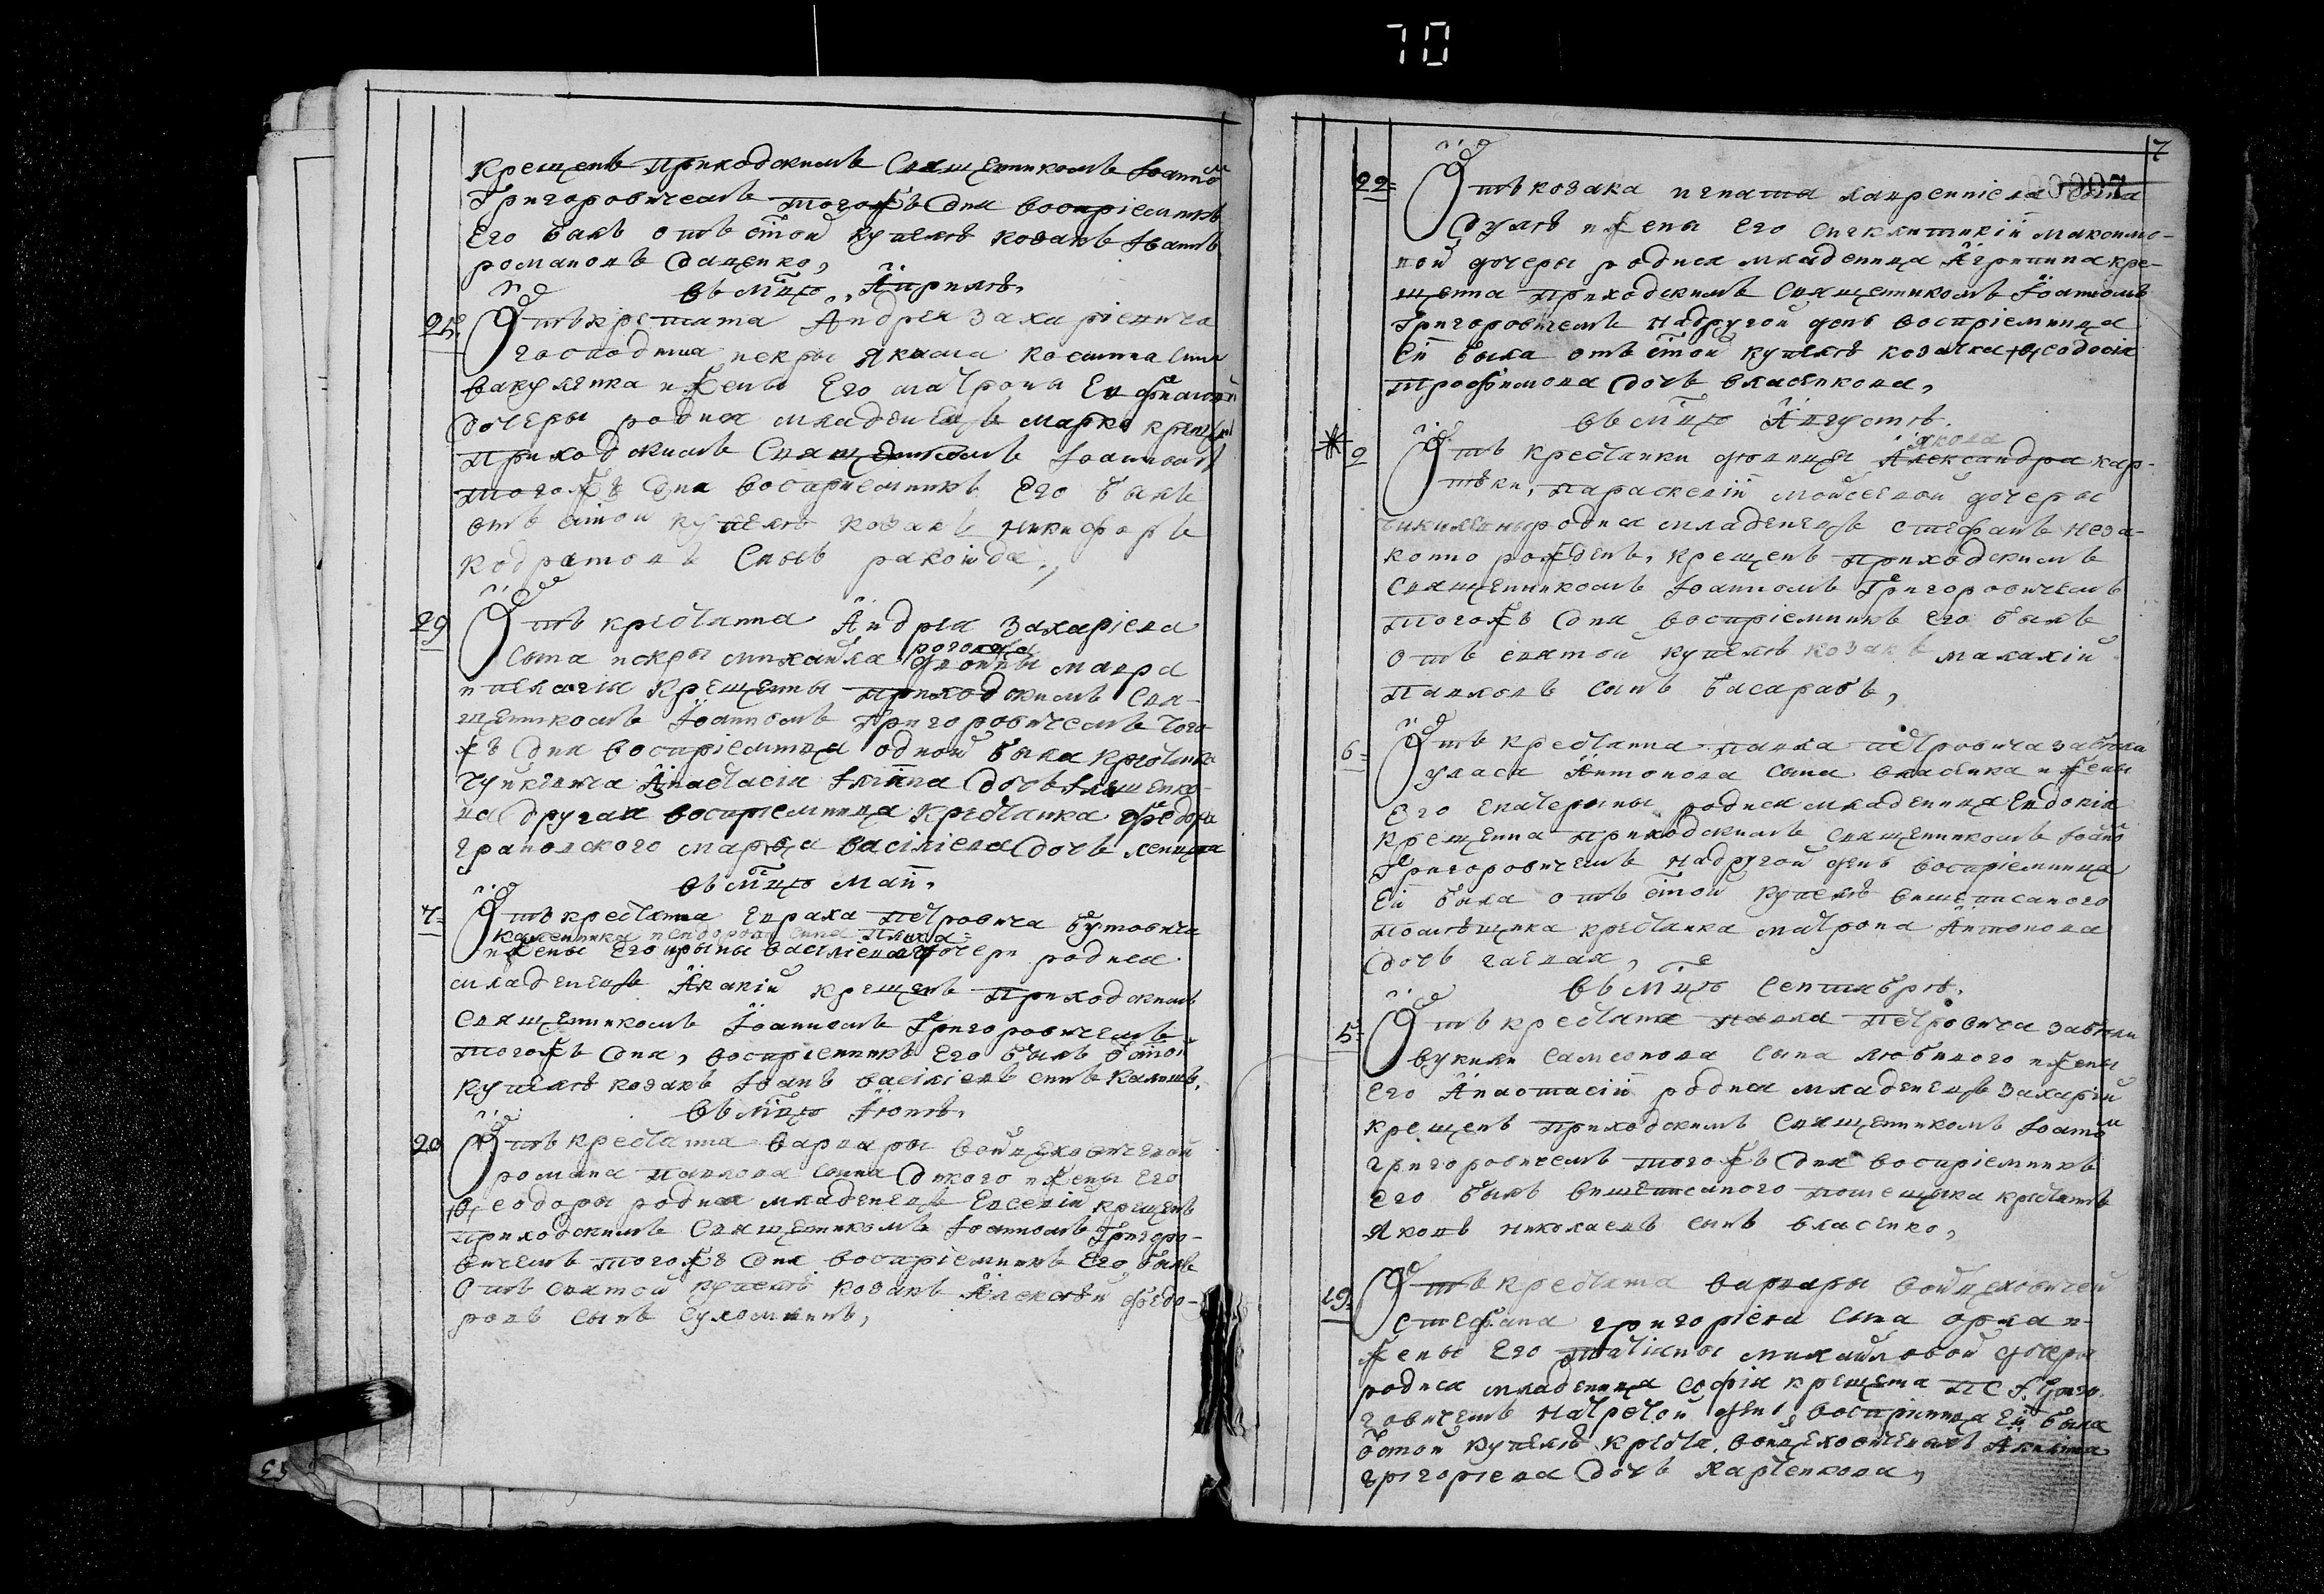 70
крещенъ приходскимъ Священникомъ Іоанно
Григоровичемъ тогожъ дня воспріемникъ
Его былъ отъ стой купелѣ козакъ Іоаннъ
романовъ даценко,
въ мцѣ Априлѣ,
25. Отъ крестянина Андрея Захаріевича
господина искры якима косminа сина
вакуленка и жены Его матроны Евфимовой
дочеры родися младенецъ марко крещенъ
приходскимъ Священникомъ Іоанномъ
тогожъ дня воспріемникъ Его былъ
отъ стой купелѣ козакъ никифоръ
кодратовъ Синъ ракоида,
29 Отъ крестянина Андрея Захаріева
рогожа
сына искры михаила двойны мавра
и пелагія крещенны приходскимъ Свя-
щенникомъ Іоанномъ Григоровичемъ того
жъ дня воспріемница одной была крестянка
Анастасія дочъ
ва другая воспріемница крестянка федора
грановского марѳа василіева дочъ
въ мцѣ маіи,
7 Отъ крестянина Евраха Петровича бутовича
каленика сина
и жены Его ирыны василіевой дочери родися
младенецъ Акакій крещенъ приходскимъ
священникомъ Іоанномъ Григоровичемъ
тогожъ дня, воспріемникъ Его былъ отъ стой
купелѣ козакъ Іоанъ василіевъ синъ калишъ,
въ мцѣ Іюнѣ,
20 Отъ крестянина варвары войцеховичевой
романа павлова сина дикого и жены Его
Ѳеодоры родися младенецъ Евсевій крещенъ
приходскимъ Священникомъ Іоанномъ Григоро-
вичемъ тогожъ дня воспріемникъ Его былъ
Отъ святой купелѣ козакъ Алексѣй федо-
ровъ сынъ сухомлинъ,
7
22 Отъ козака игната лаврентіева сына
дулѣ и жены Его синклитикіи максимо-
вой дочеры родися младеница Агрипина кре-
щенна приходскимъ Священникомъ Іоанномъ
Григоровичемъ на другой день воспріемница
Еи была отъ стой купелѣ козачка Ѳеодосія
трофимова дочъ власенкова,
въ мцѣ Августѣ.
якова
2 Отъ крестянки вдовици Александра кар-
пѣки, параскевіи мойсеевой дочеры
чикилевны родися младенецъ стефанъ неза-
конно рожденъ, крещенъ приходскимъ
священникомъ Іоанномъ Григоровичемъ
тогожъ дня воспріемникъ Его былъ
отъ святой купелѣ козакъ малахій
павловъ сынъ басарабъ,
6 Отъ крестянина павла петровича забѣли
уласа Антонова сина власенка и жены
Его Екатерины родися младеница Евдокія
крещенна приходскимъ священникомъ Іоано
Григоровичемъ на другой день воспріемница
Еи была отъ стой купелѣ вишеписаного
помѣщика крестянка матрона Антонова
дочъ гаевая,
въ мцѣ Септиврѣ,
5 Отъ крестянина павла Петровича забѣли
вукили самсонова сына любивого и жены
Его Анастасіи родися младенецъ Захарій
крещенъ приходскимъ Священникомъ Іоанно
григоровичемъ тогожъ дня воспріемникъ
Его былъ вишеписаного помещика крестянинъ
яковъ николаевъ синъ власенко,
19 Отъ крестянина варвары войцеховичевой
стефана григоріева сина орла и
жены Его татіяны михайловой дочеры
родися младеница Софія крещенна
на третой день воспріемница Еи была
отъ стой купелѣ войцеховичевой Акилина
григоріева дочъ харченкова,